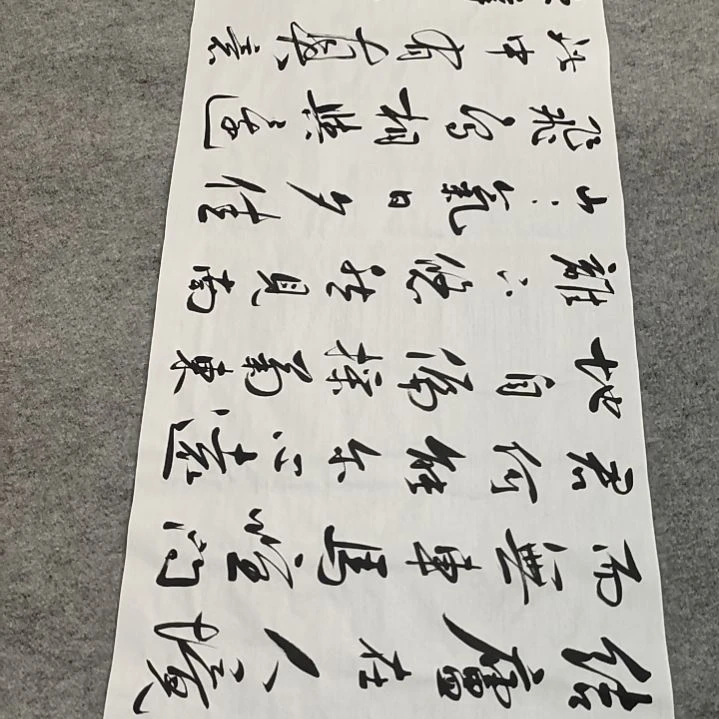 結廬在人境
而無車馬喧問
君何能尔心遠
地自偏採菊東
籬下悠然見南
山〻氣日夕佳
飛鳥相與還
此中有真意